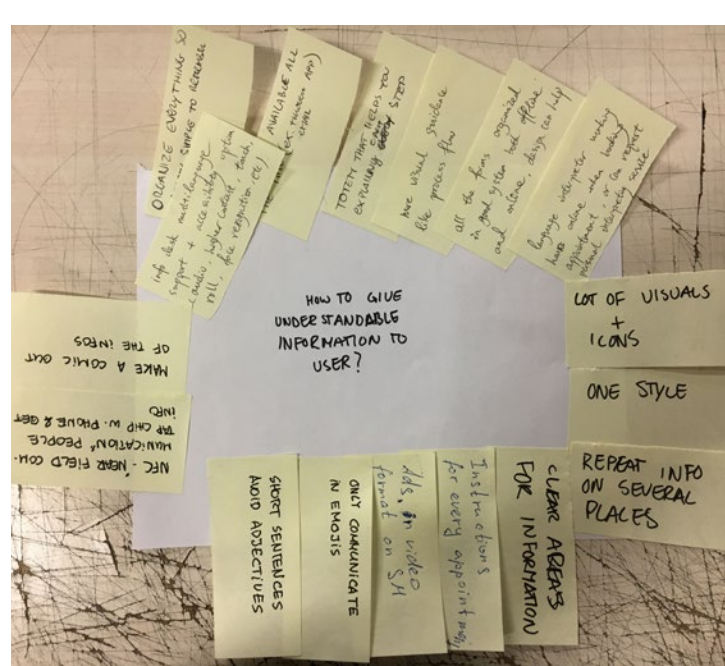 HOW TO GIVE
UNDERSTANDABLE
INFORMATION TO
USER?
ORGANIZE EVERYTHING SO
SIMPLE TO REMEMBER
info desk multilanguage
support + accessibility option
audio, higher contrast, touch,
roll, face recognition etc)
AVAILABLE ALL
THE TIME (EX. THROUGH APP)
TOTEM THAT HELPS YOU
EXPLAINING EACH STEP
more visual guidence
like process flow
all the forms organized
in good system both offline
and online, design can help
language interpreter working
online when booking
appointment, or can request
personal interpreting service
LOT OF VISUALS
+
ICONS
ONE STYLE
REPEAT INFO
ON SEVERAL
PLACES
CLEAR AREAS
FOR INFORMATION
Instructions
for every appointment
Ads, in video
format on SM
ONLY COMMUNICATE
IN EMOJIS
SHORT SENTENCES
AVOID ADJECTIVES
NFC - "NEAR FIELD COM-
MUNICATION" PEOPLE
TAP CHIP W. PHONE & GET
INFO
MAKE A COMIC OUT
OF THE INFOS